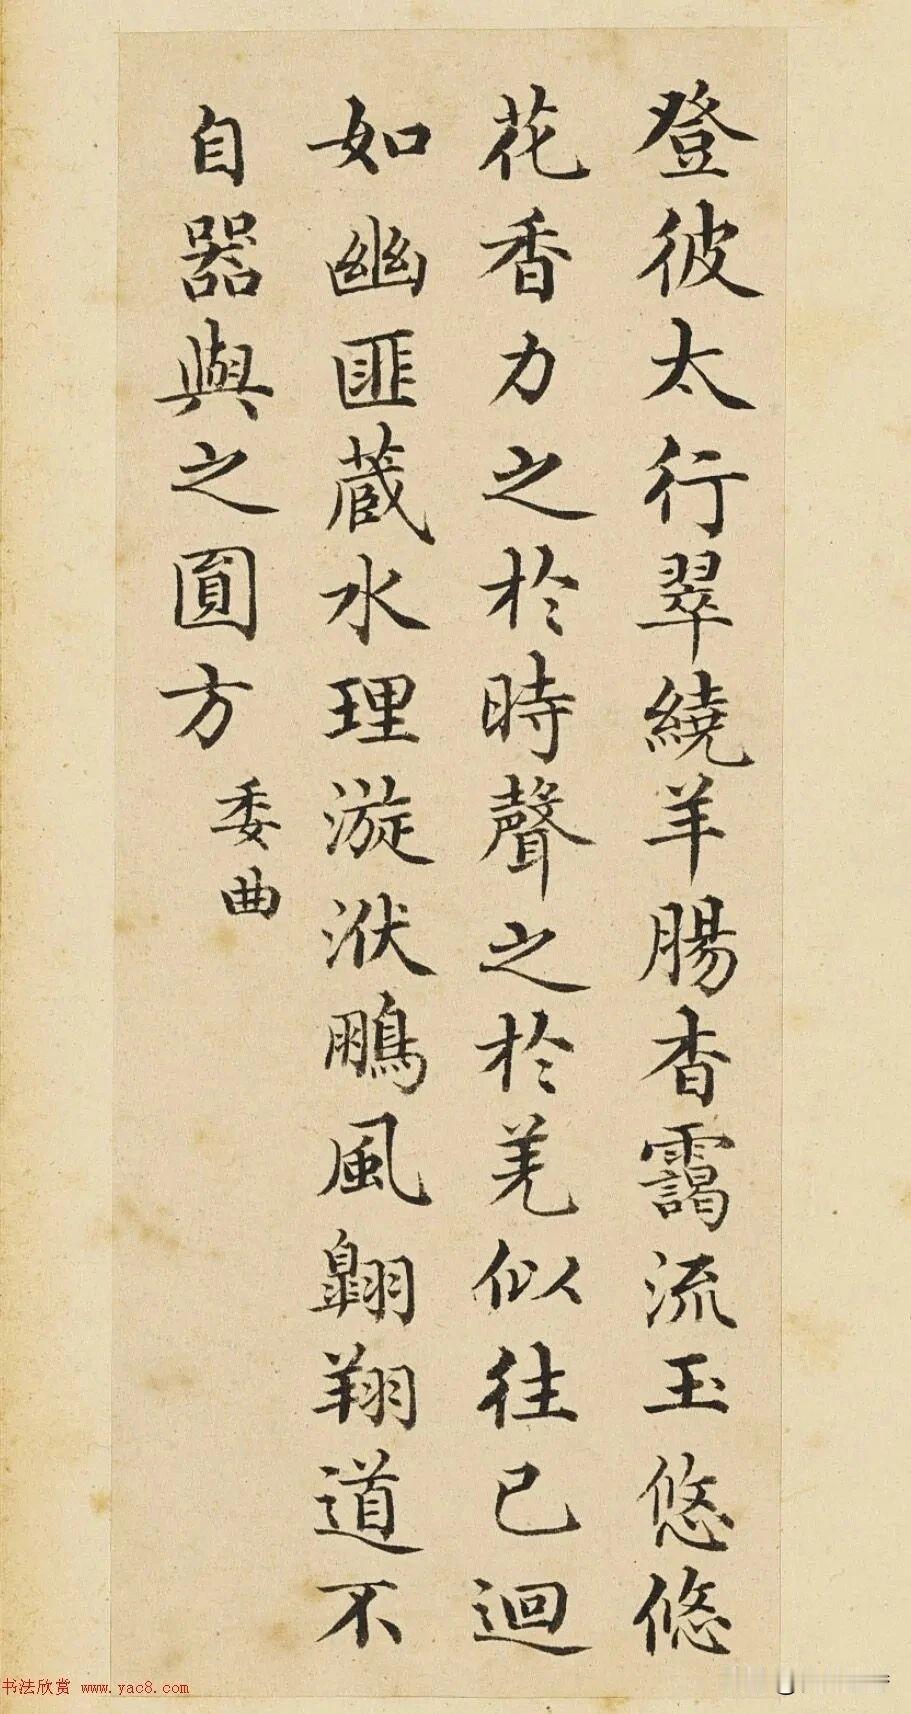 登彼太行翠繞羊腸杳靄流玉悠悠
花香力之於時聲之於羌似往已迴
如幽匪蔵水理漩洑鵬風翺翔道不
自器與之圎方
委曲
书法欣赏 www.yac8.com